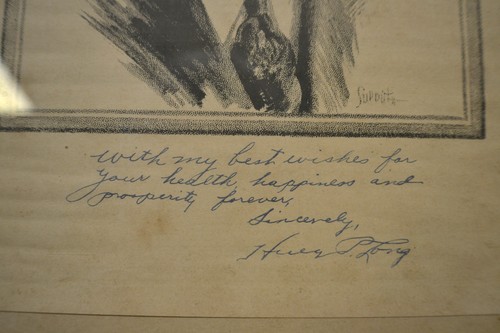 With my best wishes for
your health, happiness and
prosperity forever,
Sincerely,
Huey P. Long